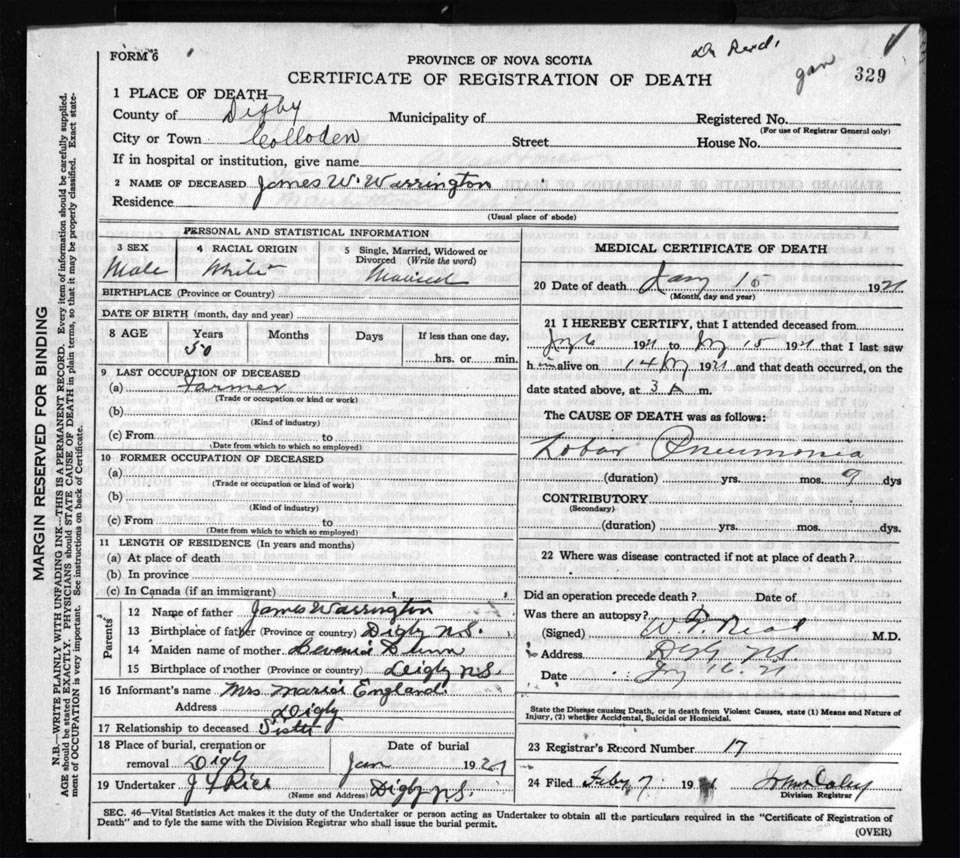 FORM 6
PROVINCE OF NOVA SCOTIA
Dr Read.
CERTIFICATE OF REGISTRATION OF DEATH
Jan
329
1 PLACE OF DEATH
County of Digby Municipality of Registered No.
(For use of Registrar General only)
City or Town Colloden Street House No.
If in hospital or institution, give name
2 NAME OF DECEASED James W. Warrington
Residence
(Usual place of abode)
PERSONAL AND STATISTICAL INFORMATION
3 SEX 4 RACIAL ORIGIN 5 Single, Married, Widowed or
Divorced (Write the word)
Male White Married
BIRTHPLACE (Province or Country)
DATE OF BIRTH (month, day and year)
8 AGE Years Months Days If less than one day,
50
hrs. or min.
9 LAST OCCUPATION OF DECEASED
(a) Farmer
(Trade or occupation or kind or work)
(b)
(Kind of industry)
(c) From to
(Date from which to which so employed)
10 FORMER OCCUPATION OF DECEASED
(a)
(Trade or occupation or kind of work)
(b)
(Kind of industry)
(c) From to
(Date from which to which so employed)
11 LENGTH OF RESIDENCE (In years and months)
(a) At place of death
(b) In province
(c) In Canada (if an immigrant)
Parents
12 Name of father James Warrington
13 Birthplace of father (Province or country) Digby N.S.
14 Maiden name of mother
15 Birthplace of mother (Province or country) Digby N.S.
16 Informant's name Mrs. England
Address Digby
17 Relationship to deceased Sister
18 Place of burial, cremation or Date of burial
removal Digby Jan 1921
19 Undertaker Rice Digby N.S.
(Name and Address)
MEDICAL CERTIFICATE OF DEATH
20 Date of death Jany 15 1921
(Month, day and year)
21 I HEREBY CERTIFY, that I attended deceased from
1921 to 15 1921 that I last saw
him alive on 14 1921 and that death occurred, on the
date stated above, at 3 A m.
The CAUSE OF DEATH was as follows:
Lobar Pneumonia
(duration) yrs. mos. 9 dys
CONTRIBUTORY
(Secondary)
(duration) yrs. mos. dys.
22 Where was disease contracted if not at place of death?
Did an operation precede death? Date of
Was there an autopsy?
(Signed) Read M.D.
Address Digby NS
Date 16. 21
State the Disease causing Death, or in death from Violent Causes, state (1) Means and Nature of
Injury, (2) whether Accidental, Suicidal or Homicidal.
23 Registrar's Record Number 17
24 Filed Feby 7 1921
Division Registrar
SEC. 46—Vital Statistics Act makes it the duty of the Undertaker or person acting as Undertaker to obtain all the particulars required in the "Certificate of Registration of
Death" and to fyle the same with the Division Registrar who shall issue the burial permit.
(OVER)
MARGIN RESERVED FOR BINDING
N.B.—WRITE PLAINLY WITH UNFADING INK—THIS IS A PERMANENT RECORD. Every item of information should be carefully supplied.
AGE should be stated EXACTLY. PHYSICIANS should STATE CAUSE OF DEATH in plain terms, so that it may be properly classified. Exact state-
ment of OCCUPATION is very important. See instructions on back of Certificate.